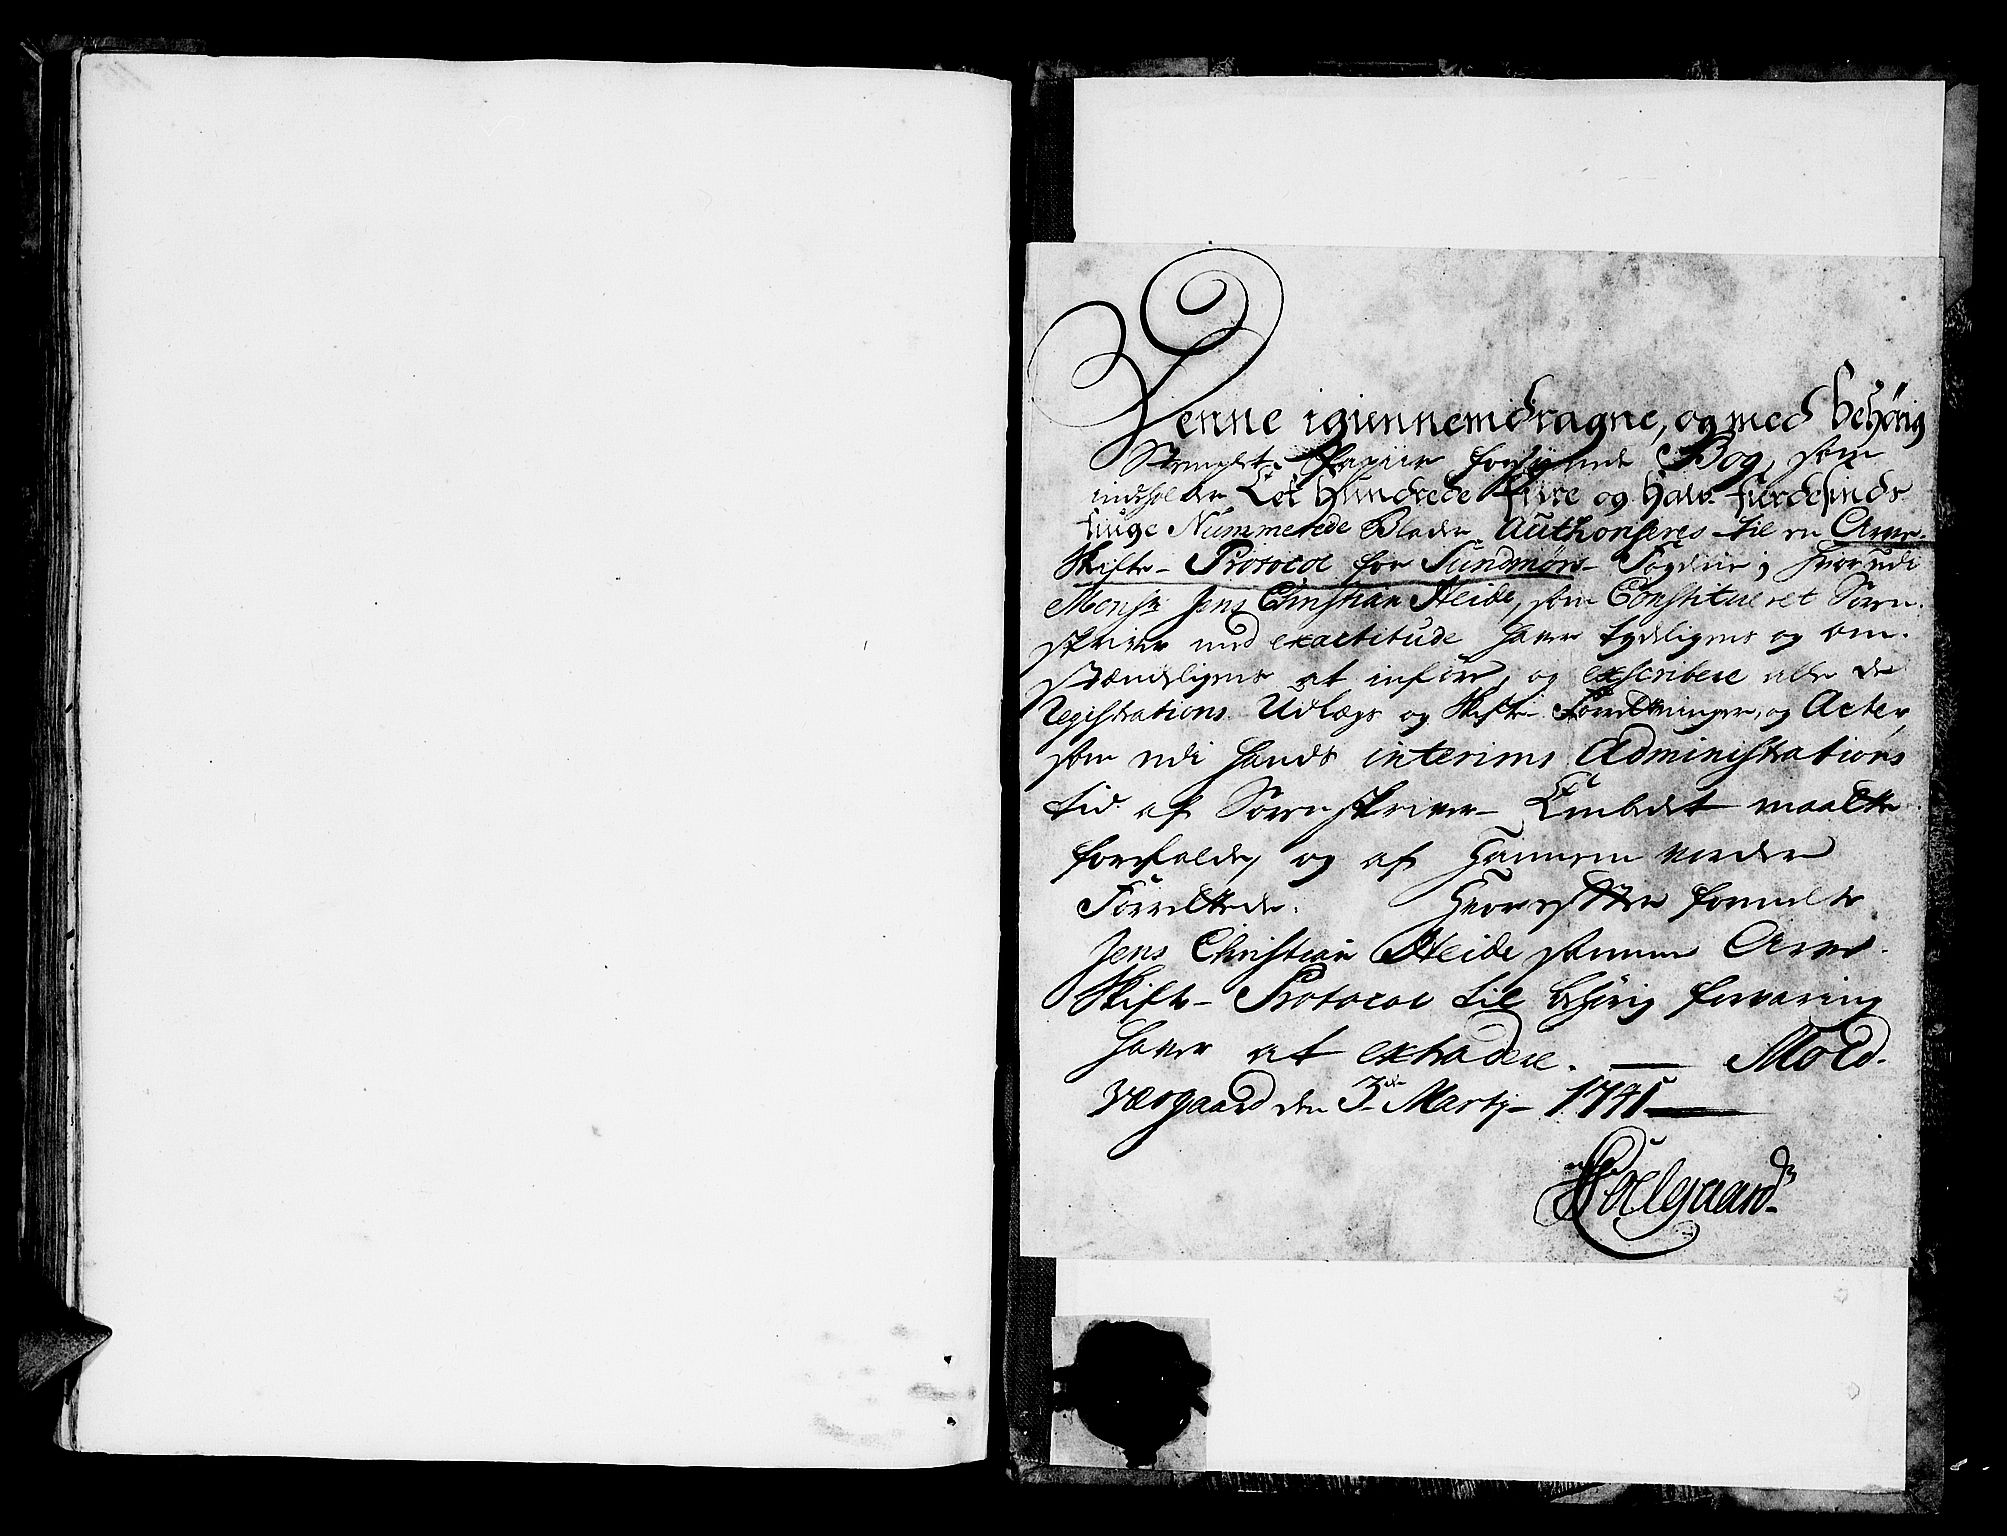 Denne igiennemdragne, og med behørig
Stemplet Papiir forsynede Bog, som
indholder Eet hundrede fiire og halv fierdesinds
tiuge Nummerede Blader, Authoriseres til en Arve-
Skifte- Protocol for Sundmørs- Fogderie; hvorudi
Monsr. Jens Christian Heide, som Constitueret Soren-
skriver med exactitude haver tydeligens og om-
stændeligens at indføre, og exscribere alle de
Registrations Udlægs og Skifte- Forretninger, og Acter,
som udi hands interims Administrations
tid af Sorenskriver- Embedet maatte
forefalde, og af hannem vorder
Forrettede. Hvorefter formelte
Jens Christian Heide samme Arve-
Skifte- Protocol til behørig forvaring
haver at extradere. — Mold-
værgaard den 3de Martij 1741
Holgaard